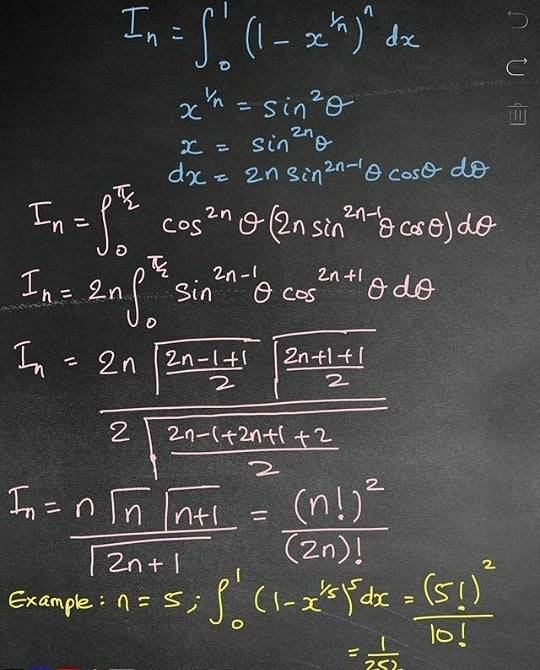 Iₙ = ∫₀¹ (1 - x^(1/n))ⁿ dx
x^(1/n) = sin²θ
x = sin²ⁿθ
dx = 2n sin²ⁿ⁻¹θ cosθ dθ
Iₙ = ∫₀^(π/2) cos²ⁿθ (2n sin²ⁿ⁻¹θ cosθ) dθ
Iₙ = 2n ∫₀^(π/2) sin²ⁿ⁻¹θ cos²ⁿ⁺¹θ dθ
Iₙ = 2n Γ((2n-1+1)/2) Γ((2n+1+1)/2) / 2 Γ((2n-1+2n+1+2)/2)
Iₙ = n Γn Γ(n+1) / Γ(2n+1) = (n!)² / (2n)!
Example: n = 5; ∫₀¹ (1-x^(1/5))⁵ dx = (5!)² / 10!
= 1/252